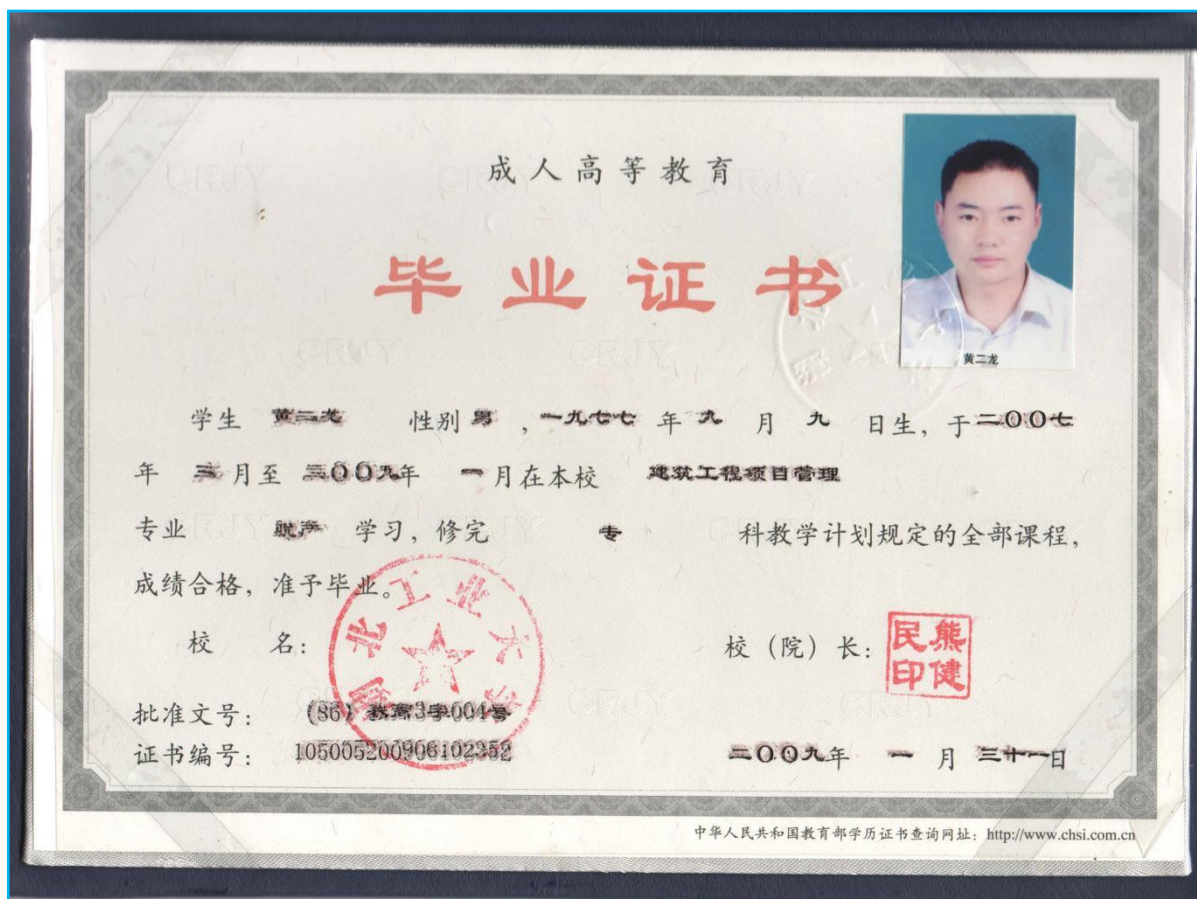 成人高等教育
毕业证书
黄二龙
学生 黄二龙 性别 男 ，一九七七 年 九 月 九 日生，于二〇〇七
年 三 月至 二〇〇九年 一月在本校 建筑工程项目管理
专业 脱产 学习，修完 专 科教学计划规定的全部课程，
成绩合格，准予毕业。
湖北工业大学
校 名： 校（院）长：
熊健民印
批准文号： (86) 教高3字004号
证书编号： 105005200906102352 二〇〇九年 一 月 三十一日
中华人民共和国教育部学历证书查询网址：http://www.chsi.com.cn